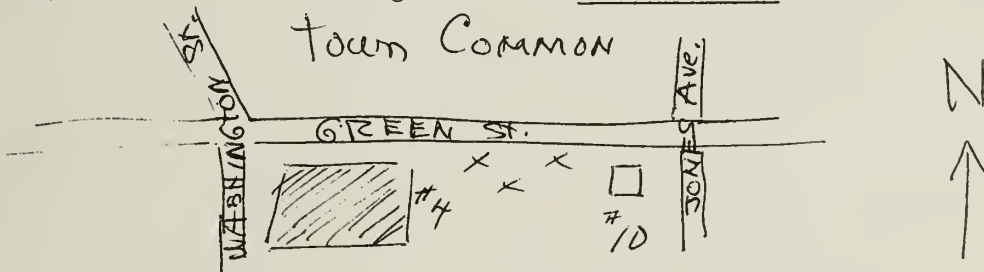 Town Common
N
WASHINGTON St.
GREEN St.
JONES Ave.
x x
x
#4
#10